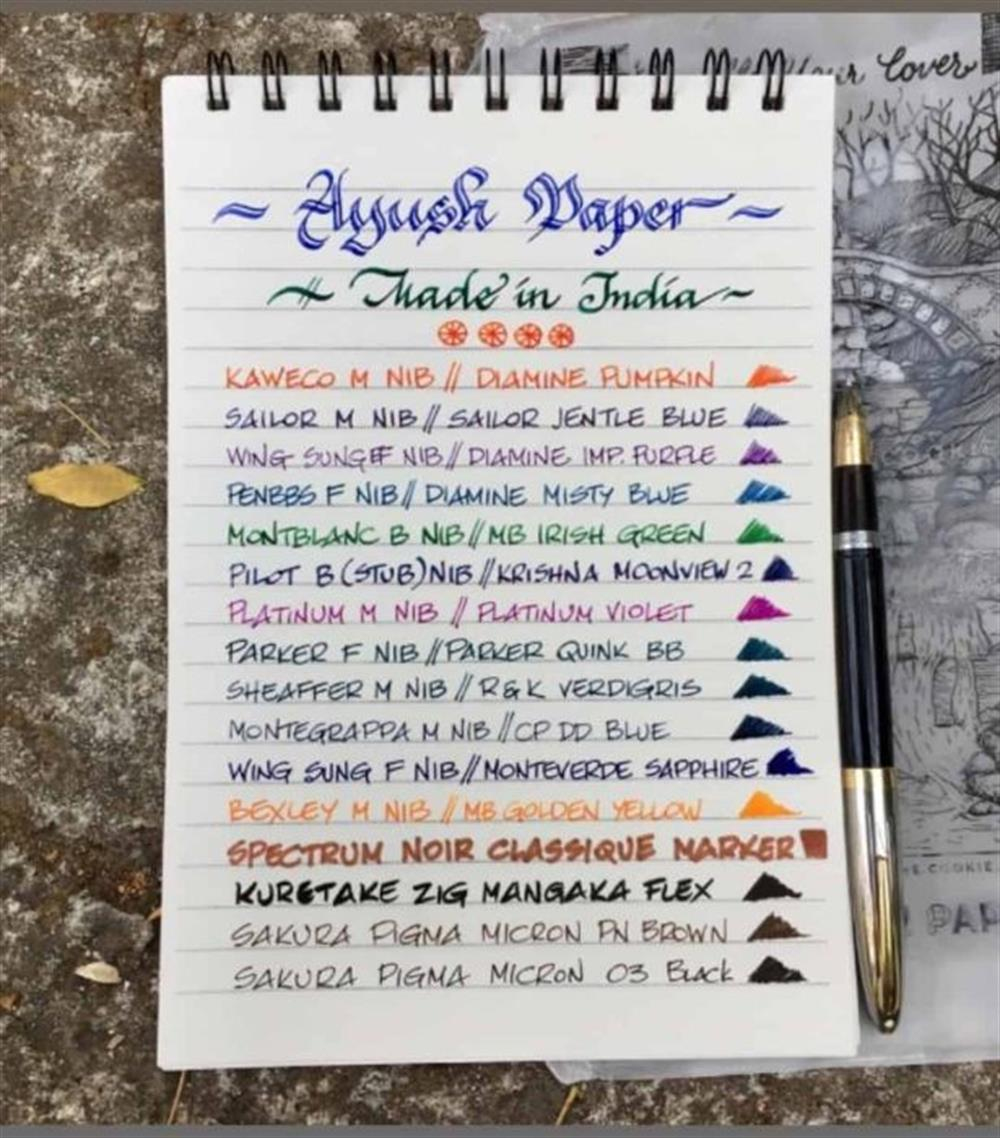 your Cover
~ Ayush Paper ~
~ Made in India ~
KAWECO M NIB // DIAMINE PUMPKIN
SAILOR M NIB // SAILOR JENTLE BLUE
WING SUNG EF NIB // DIAMINE IMP. PURPLE
PENBBS F NIB // DIAMINE MISTY BLUE
MONTBLANC B NIB // MB IRISH GREEN
PILOT B (STUB) NIB // KRISHNA MOONVIEW 2
PLATINUM M NIB // PLATINUM VIOLET
PARKER F NIB // PARKER QUINK BB
SHEAFFER M NIB // R&K VERDIGRIS
MONTEGRAPPA M NIB // CP DD BLUE
WING SUNG F NIB // MONTEVERDE SAPPHIRE
BEXLEY M NIB // MB GOLDEN YELLOW
SPECTRUM NOIR CLASSIQUE MARKER
KURETAKE ZIG MANGAKA FLEX
SAKURA PIGMA MICRON PN BROWN
SAKURA PIGMA MICRON 03 Black